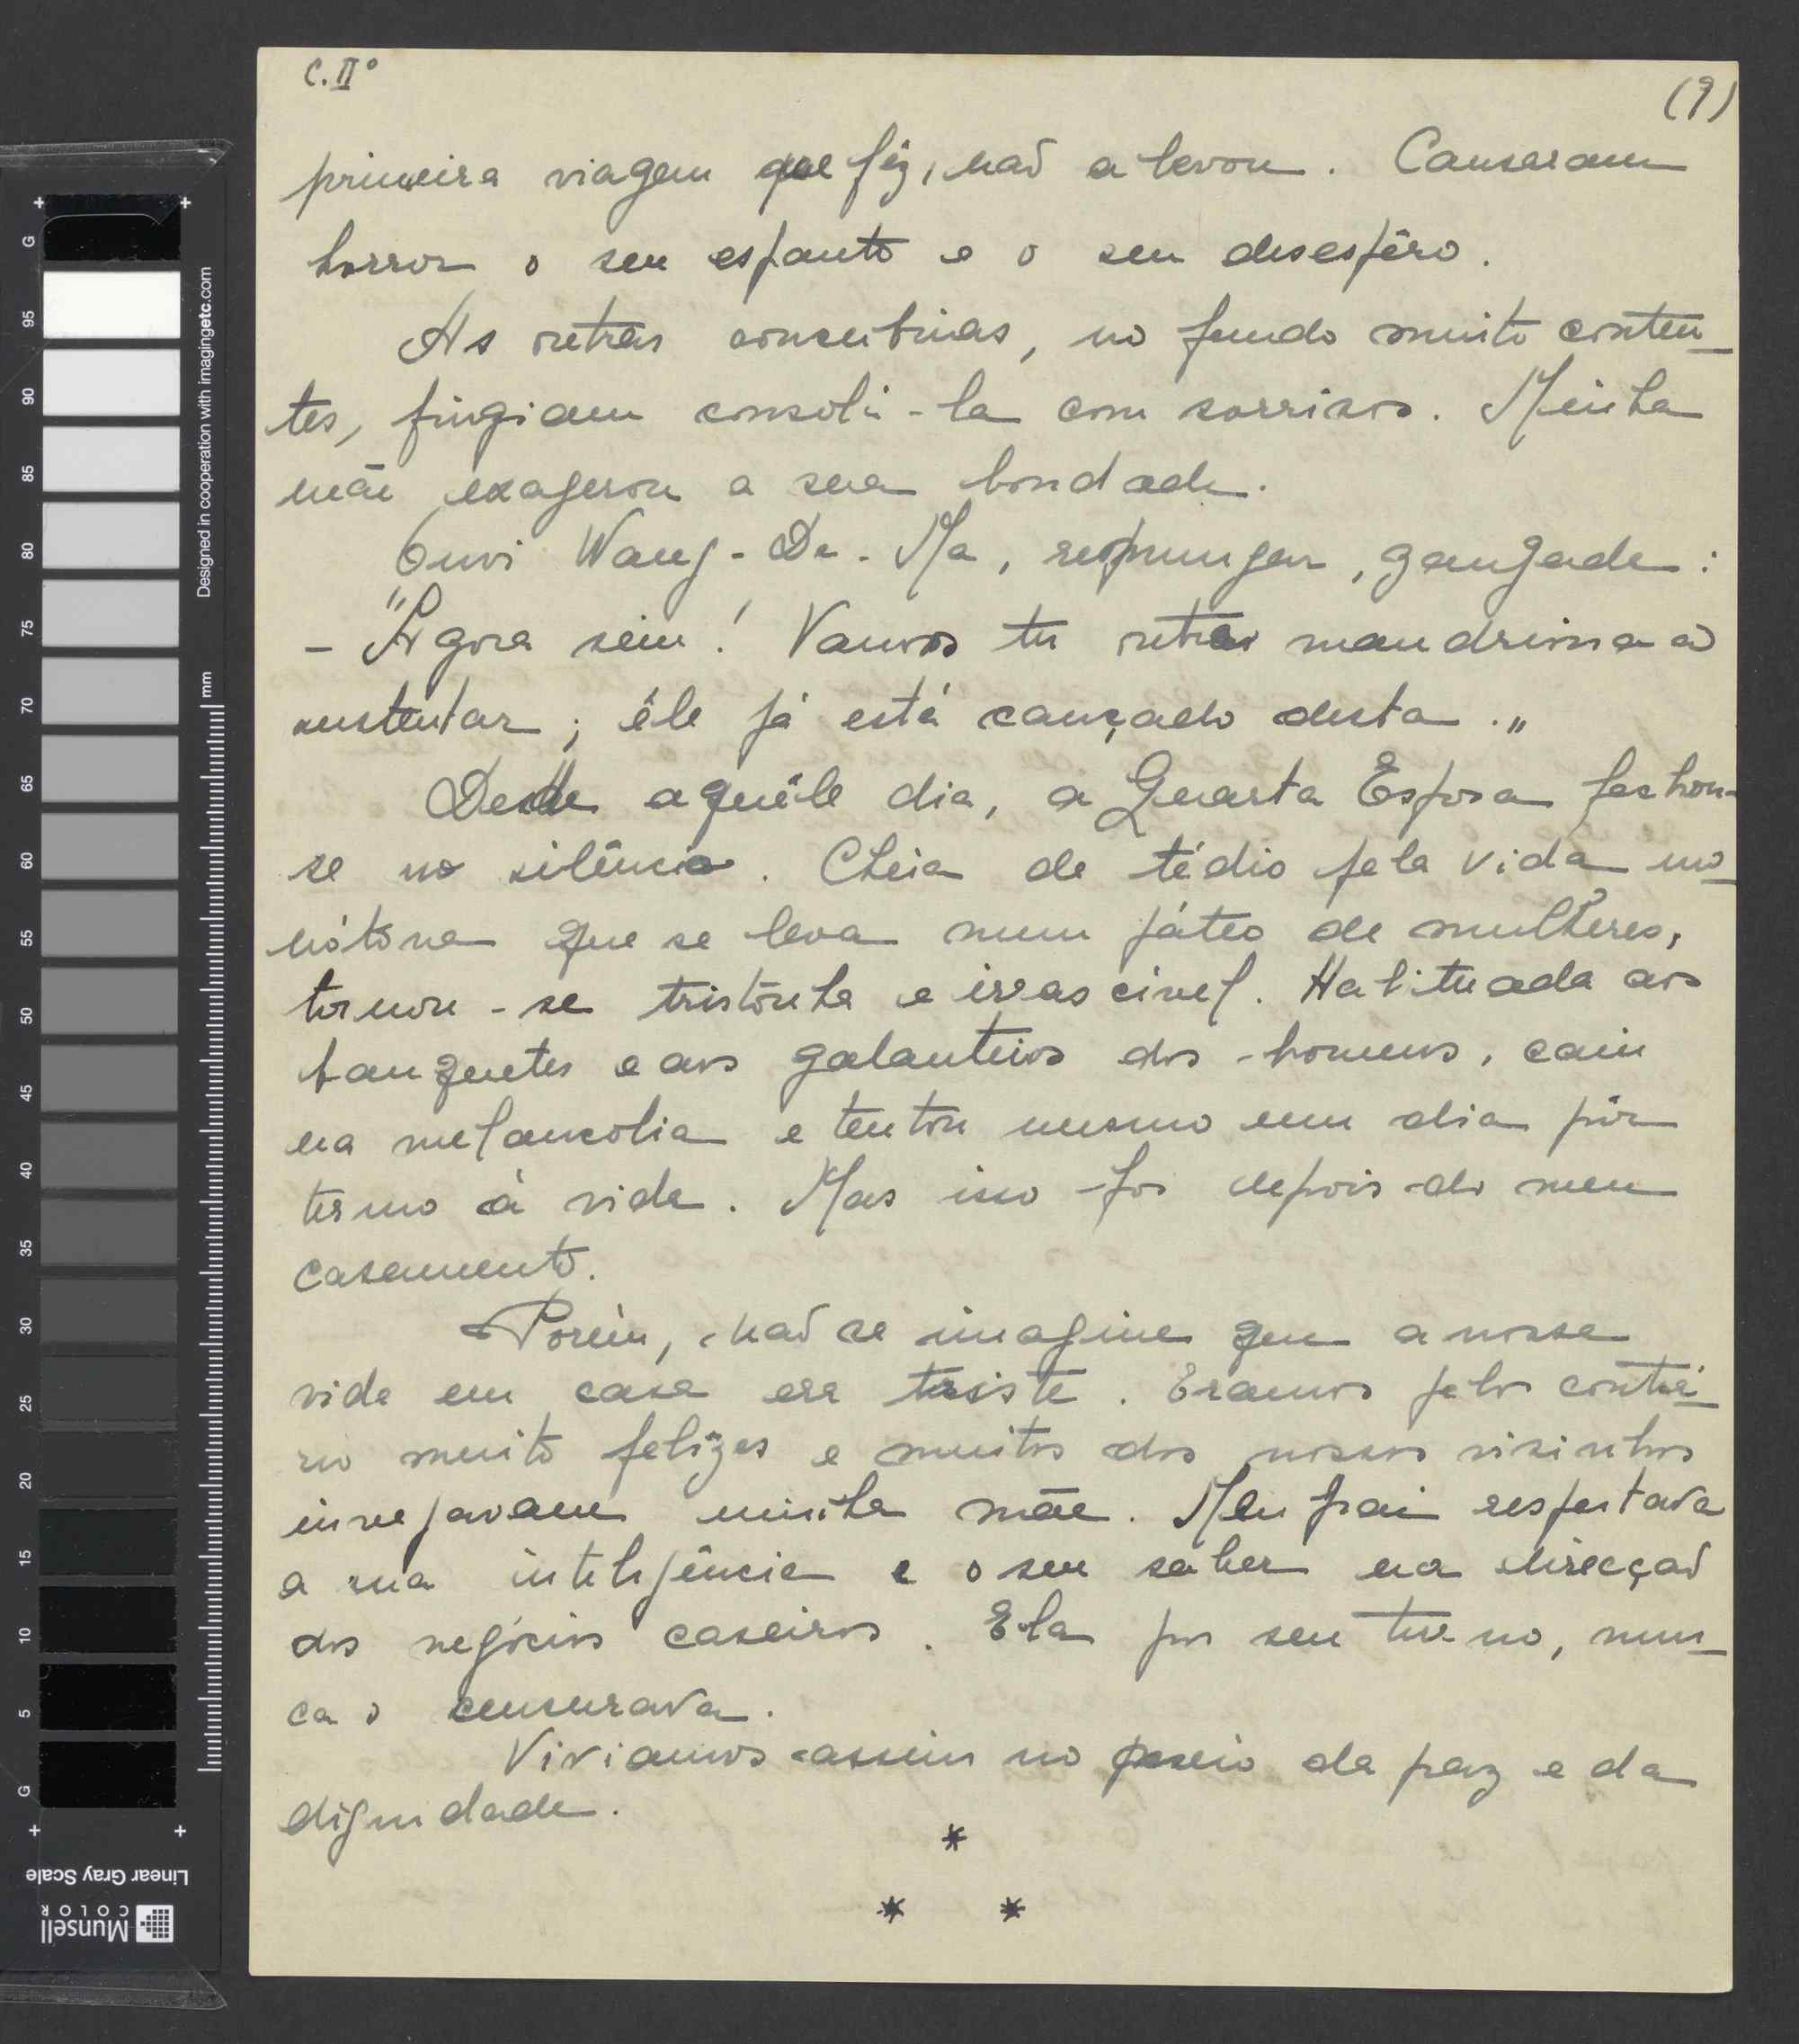 C. IIº
(9)
primeira viagem que fêz, não a levou. Causaram
horror o seu espanto e o seu desespêro.
As outras concubinas, no fundo muito conten-
tes, fingiam consolá-la com sorrisos. Minha
mãe exagerou a sua bondade.
Ouvi Wang-Da-Ma, resmungar, zangada:
- "Agora sim! Vamos ter outra mandriona a
sustentar; êle já está cançado desta."
Desde aquêle dia, a Quarta Esposa fechou-
se no silêncio. Cheia de tédio pela vida mo-
nótona que se leva num páteo de mulheres,
tornou-se tristonha e irrascivel. Habituada aos
banquetes e aos galanteios dos homens, caiu
na melancolia e tentou mesmo um dia pôr
termo à vida. Mas isso foi depois do meu
casamento.
Porém, não se imagine que a nossa
vida em casa era triste. Eramos pelo contrá-
rio muito felizes e muitos dos nossos visinhos
invejavam minha mãe. Meu pai respeitava
a sua inteligência e o seu saber na direcção
dos negócios caseiros. Ela por seu turno, nun-
ca o censurava.
Viviamos assim no seio da paz e da
dignidade.
*
* *
Designed in cooperation with imagingetc.com
mm
G 95 90 85 80 75 70 65 60 55 50 45 40 35 30 25 20 15 10 5 G
Linear Gray Scale
Munsell
COLOR